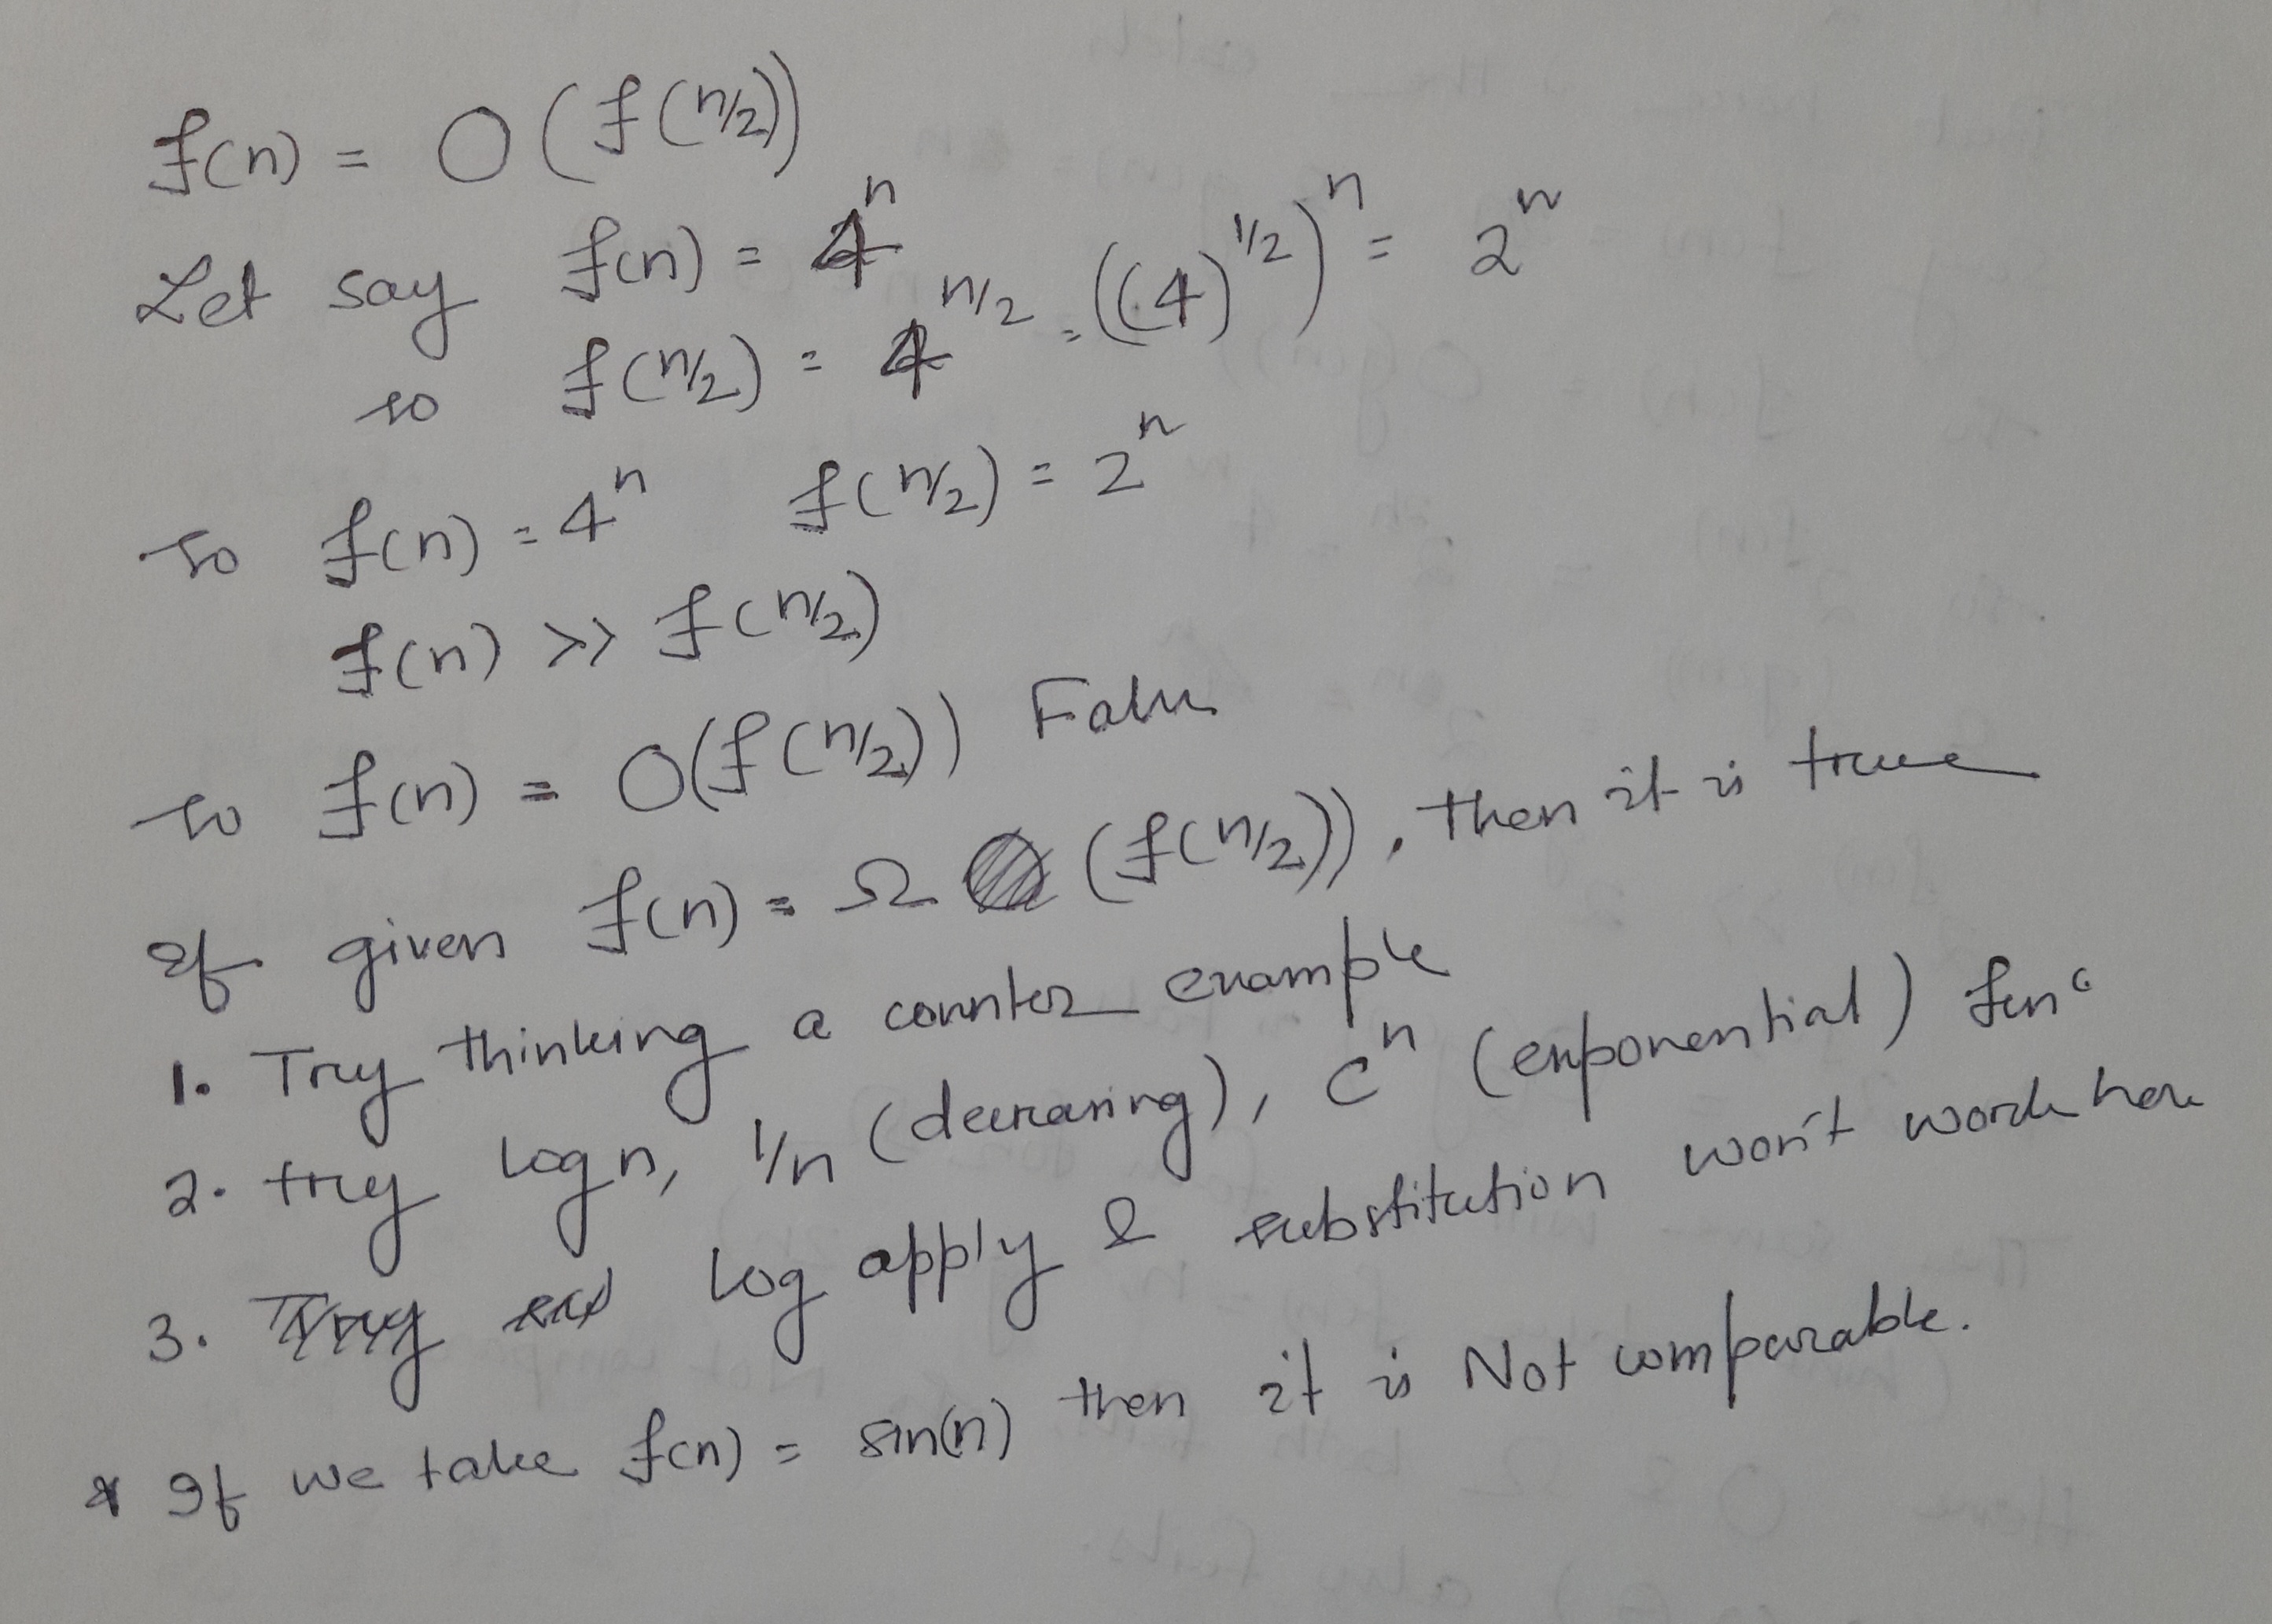 f(n) = O(f(n/2))
Let say f(n) = 4^n
so f(n/2) = 4^n/2 = ((4)^1/2)^n = 2^n
So f(n) = 4^n f(n/2) = 2^n
f(n) >> f(n/2)
So f(n) = O(f(n/2)) False
If given f(n) = Ω (f(n/2)), then it is true
1. Try thinking a counter example
2. try log n, 1/n (decreasing), c^n (exponential) func
3. log apply & substitution won't work here
* If we take f(n) = sin(n) then it is Not comparable.